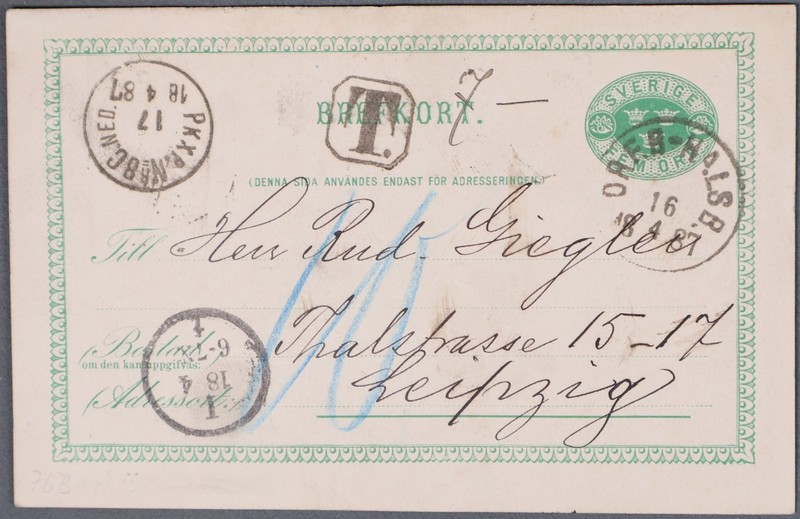 PKXP.Nr 8C.NED.
17
18 4 87
T.
7 –
BREFKORT.
SVERIGE
FEM ÖRE
16
18 4 87
(DENNA SIDA ANVÄNDES ENDAST FÖR ADRESSERINGEN.)
Till Herr Rud. Giegler
10
Thalstrasse 15–17
(Bostad
om den kan uppgifvas:
Leipzig
(Adressort:)
18 4
1
76B